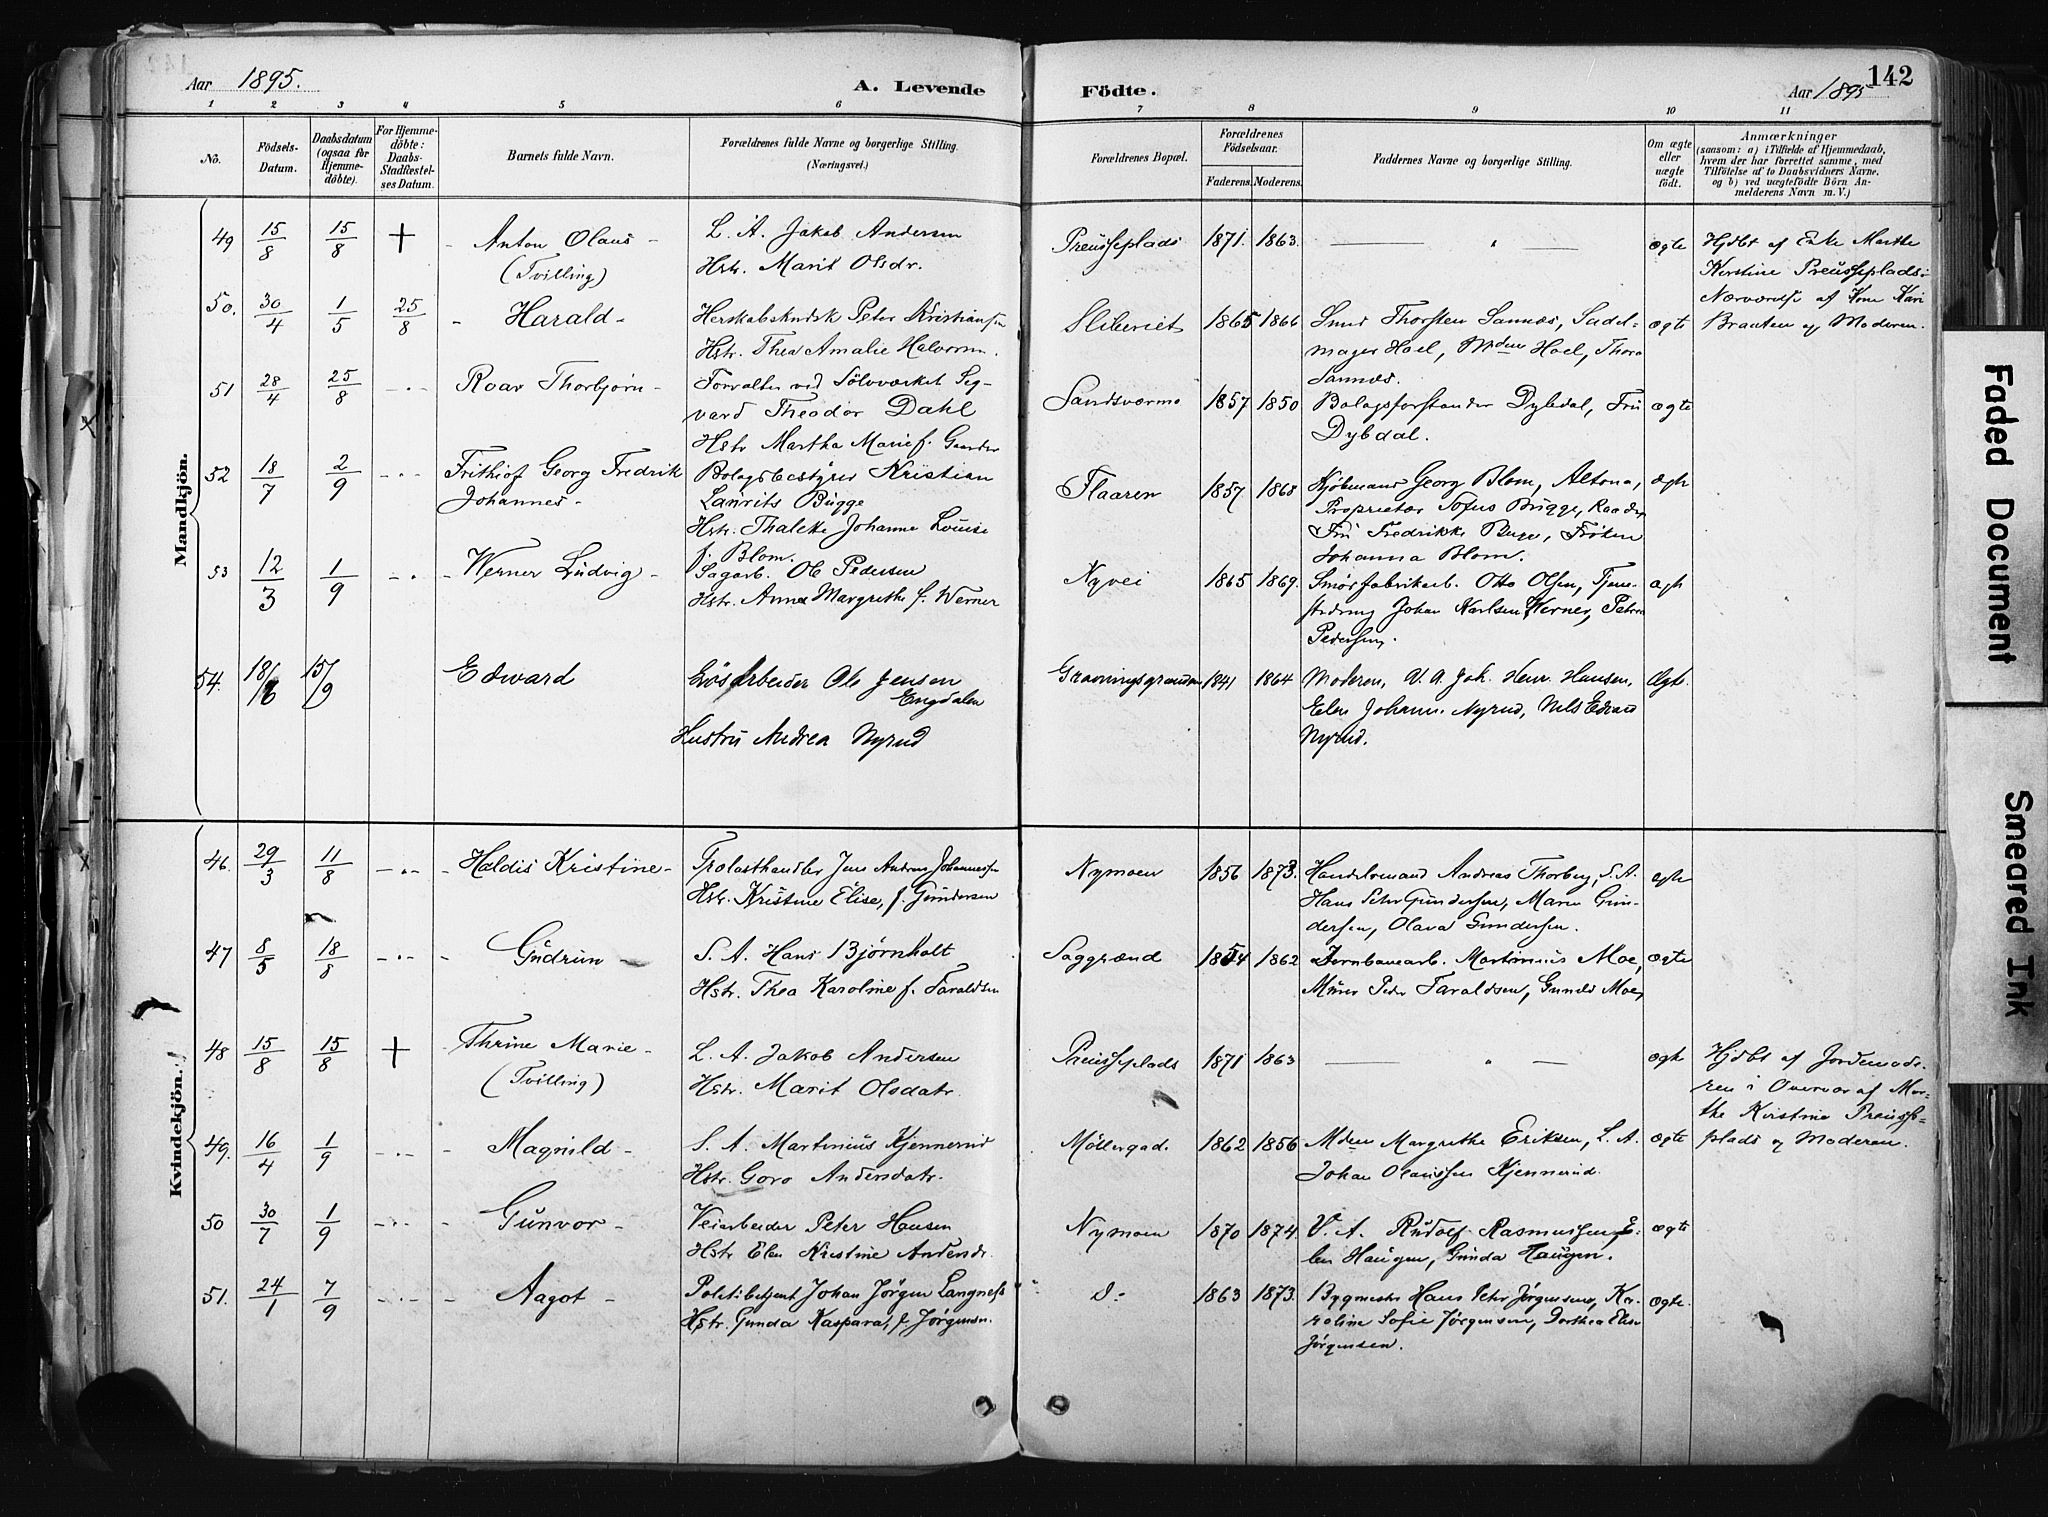 Aar 1895.
A. Levende
Födte.
Aar 1895
142
1 2 3 4 5 6 7 8 9 10 11
No.
Födsels-
Datum.
Daabsdatum
(ogsaa for
Hjemme-
döbte).
For Hjemme-
döbte:
Daabs-
Stadfæstel-
ses Datum.
Barnets fulde Navn.
Forældrenes fulde Navne og borgerlige Stilling.
(Næringsvei.)
Forældrenes Bopæl.
Forældrenes
Födselsaar.
Faderens. Moderens.
Faddernes Navne og borgerlige Stilling.
Om ægte
eller
uægte
födt.
Anmærkninger
(saasom: a) i Tilfælde af Hjemmedaab,
hvem der har forrettet samme, med
Tilföielse af to Daabsvidners Navne,
og b) ved uægtefödte Börn An-
melderens Navn m. V.)
Mandkjön.
49 15/8 15/8 + - Anton Olaus -
(Tvilling)
L. A. Jakob Andersen
Hstr. Marit Olsdr.
Preusseplads 1871. 1863. — " — ægte
Hjdbt af Enke Marthe
Kerstine Preusseplads i
Nærværelse af Kone Kari
Braaten og Moderen.
50. 30/4 1/5 25/8 - Harald -
Herskabskudsk Peter Kristiansen
Hstr. Thea Amalie Halvorsen.
Sliberiet 1865 1866
Smed Thorsten Sannæs, Sadel-
mager Hoel, Mden Hoel, Thora
Sannæs.
ægte
51 28/4 25/8 - " - Roar Thorbjørn -
Forvalter ved Sölvværket Sig-
vard Theodor Dahl
Hstr Martha Marie f. Gaarder
Sandsværmo 1857 1850
Bolagsforstander Dybdal, Fru
Dybdal.
ægte
52 18/7 2/9 - " - Frithiof Georg Fredrik
Johannes -
Bolagsbestyrer Kristian
Laurits Bugge
Hstr. Thalcke Johanne Louise
f. Blom.
Flaaren 1857 1868
Kjöbmand Georg Blom, Altona,
Proprietær Sofus Bugge,
Fru Fredrikke Bugge, Frøken
Johanna Blom.
ægte
53 12/3 1/9 - " - Werner Ludvig -
Sagarb. Ole Pedersen
Hstr. Anna Margrethe f. Werner
Nyvei 1865 1869.
Smørfabrikarb. Otto Olsen, Tjene-
stedreng Johan Karlsen Werner, Petra
Pedersen.
ægte
54. 18/6 15/9 Edward
Løsarbeider Ole Jensen
Engdalen
Hustru Andrea Nyrud
1841 1864
Moderen, V. A. Joh. Henr. Hansen,
Elen Johanne Nyrud, Nels Edvard
Nyrud.
Ægte.
Kvindekjön.
46. 29/3 11/8 - " - Haldis Kristine -
Trælasthandler Jens Andreas Johannessen
Hstr. Kristine Elise, f. Gundersen
Nymoen 1856 1873.
Handelsmand Andreas Thorberg, S. A.
Hans Petr Gundersen, Maren Gun-
dersen, Olava Gundersen.
ægte
47 8/5 18/8 - " - Gudrun -
S. A. Hans Bjørnholt
Hstr. Thea Karoline f. Taraldsen
Saggrænd 1854 1862
Jernbanearb. Martinius Moe,
Murer Peder Taraldsen, Gunild Moe,
ægte
48 15/8 15/8 + - Thrine Marie -
(Tvilling)
L. A. Jakob Andersen
Hstr. Marit Olsdatr.
Preusseplads 1871 1863 — " — ægte
Hjdbt af Jordemode-
ren i Overvær af Mar-
the Kirstine Preusse-
plads og Moderen.
49. 16/4 1/9 - " - Magnild -
S. A. Martinius Kjennerud
Hstr. Goro Andersdatr.
Möllergad. 1862 1856
Mden Margrethe Eriksen, L. A.
Johan Olaussen Kjennerud
ægte
50 30/7 1/9 - " - Gunvor -
Veiarbeider Peter Hansen
Hstr Elen Kristine Andersdr.
Nymoen 1870 1874.
V. A. Rudolf Rasmussen, E-
len Haugen, Gunda Haugen.
ægte
51. 24/1 7/9 - " - Aagot -
Politibetjent Johan Jörgen Langness
Hstr. Gunda Kaspara, f. Jørgensen.
d- 1863 1873.
Bygmester Hans Petr Jørgensen, Ka-
roline Sofie Jørgensen, Dorthea Elise
Jørgensen.
ægte.
Faded Document
Smeared Ink